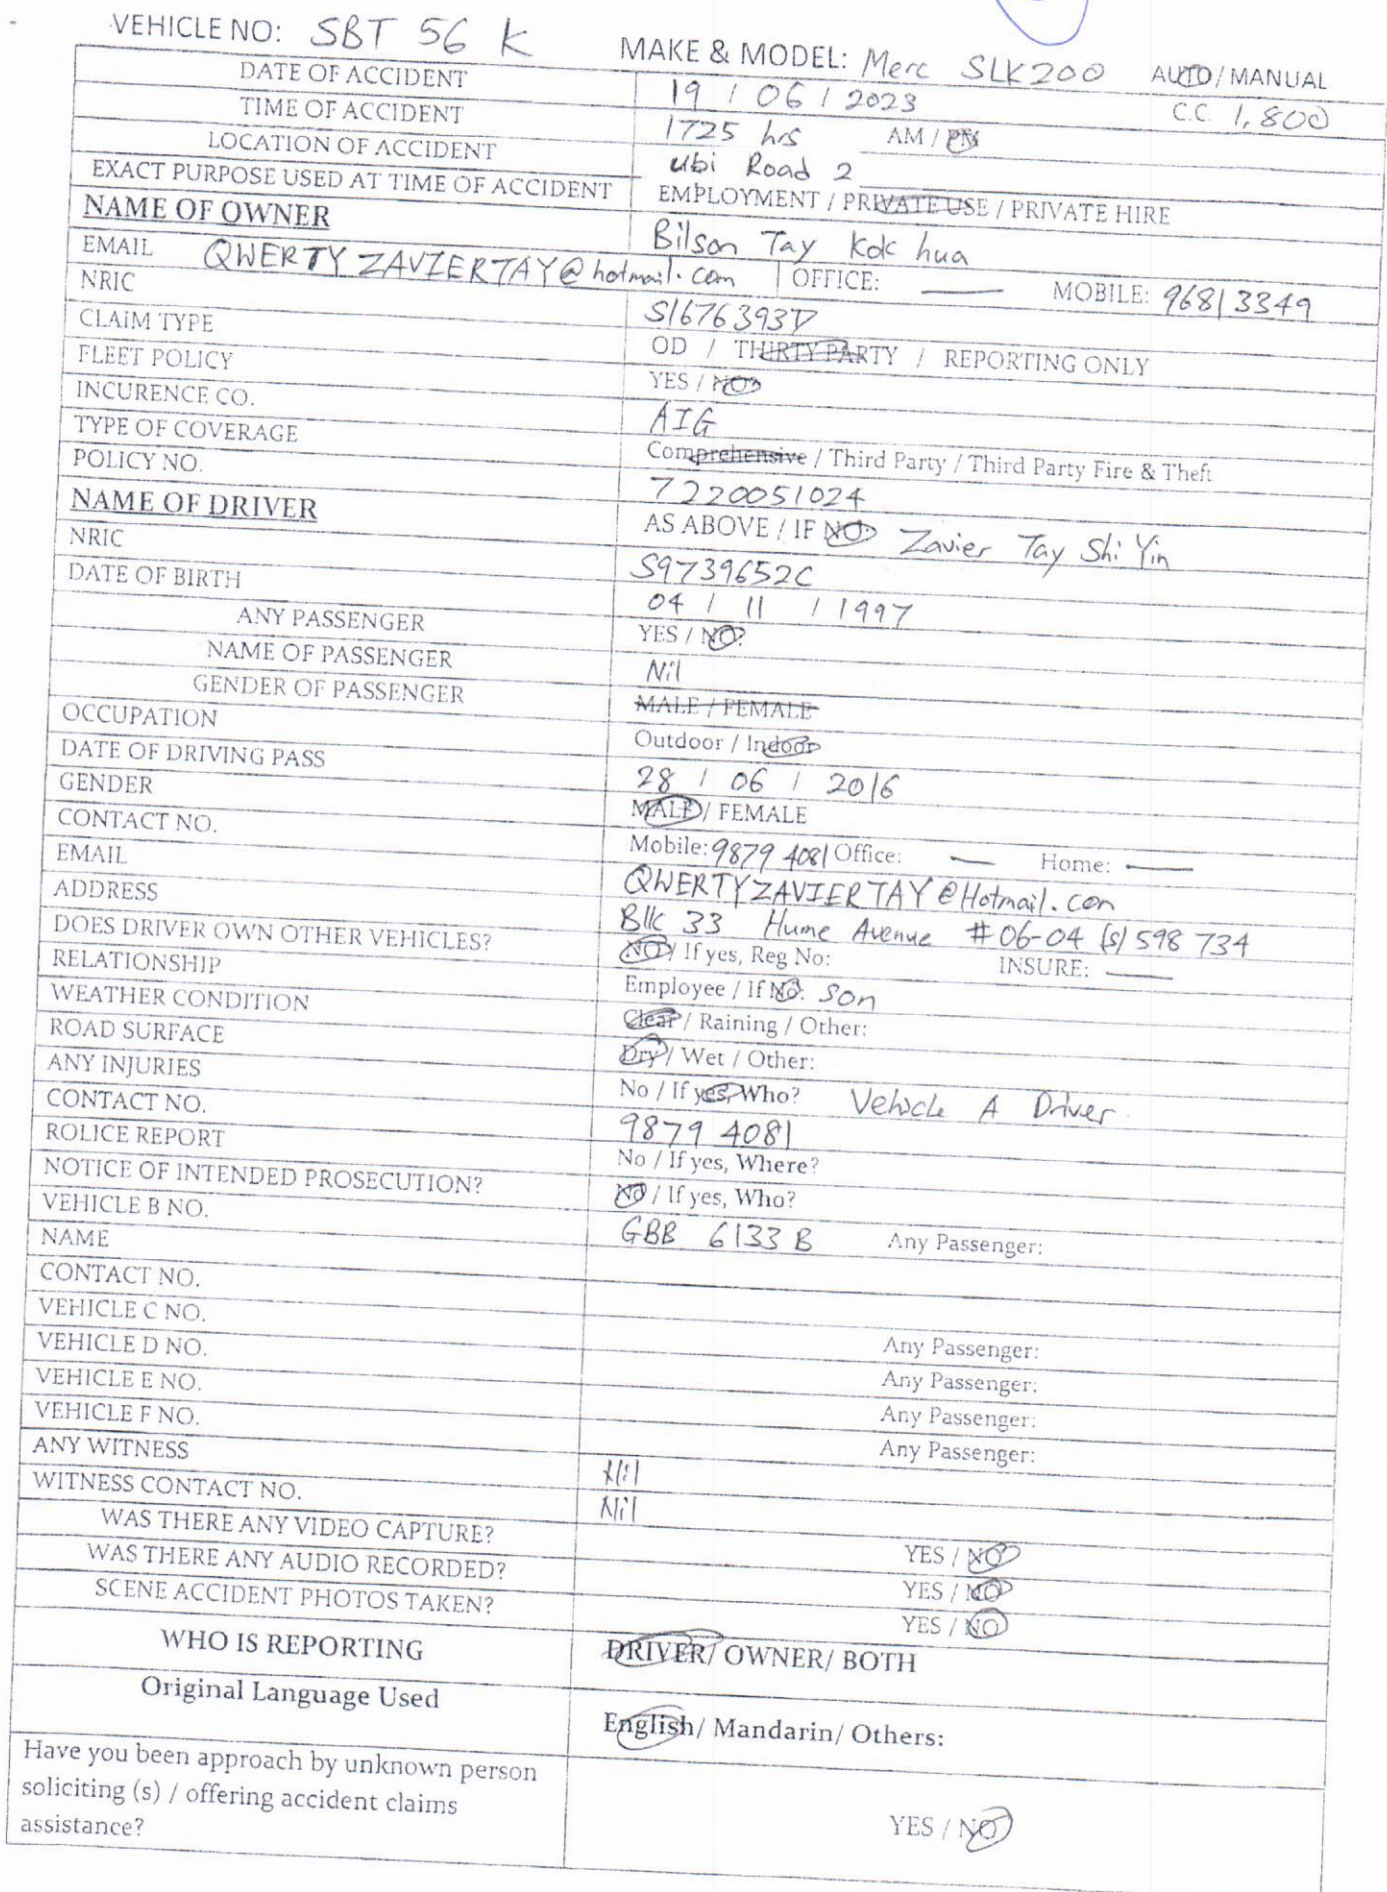 VEHICLE NO: SBT 56 K MAKE & MODEL: Merc SLK200 AUTO/MANUAL
DATE OF ACCIDENT 19 / 06 / 2023 C.C. 1,800
TIME OF ACCIDENT 1725 hrs AM / PM
LOCATION OF ACCIDENT Ubi Road 2
EXACT PURPOSE USED AT TIME OF ACCIDENT EMPLOYMENT / PRIVATE USE / PRIVATE HIRE
NAME OF OWNER Bilson Tay Kok hua
EMAIL QWERTYZAVIERTAY@hotmail.com OFFICE: — MOBILE: 9681 3349
NRIC S1676393D
CLAIM TYPE OD / THIRTY PARTY / REPORTING ONLY
FLEET POLICY YES / NO?
INCURENCE CO. AIG
TYPE OF COVERAGE Comprehensive / Third Party / Third Party Fire & Theft
POLICY NO. 7220051024
NAME OF DRIVER AS ABOVE / IF NO: Zavier Tay Shi Yin
NRIC S9739652C
DATE OF BIRTH 04 / 11 / 1997
ANY PASSENGER YES / NO?
NAME OF PASSENGER Nil
GENDER OF PASSENGER MALE / FEMALE
OCCUPATION Outdoor / Indoor
DATE OF DRIVING PASS 28 / 06 / 2016
GENDER MALE / FEMALE
CONTACT NO. Mobile: 9879 4081 Office: — Home: —
EMAIL QWERTYZAVIERTAY@Hotmail.com
ADDRESS Blk 33 Hume Avenue #06-04 (S) 598 734
DOES DRIVER OWN OTHER VEHICLES? NO / If yes, Reg No: INSURE: —
RELATIONSHIP Employee / If No. Son
WEATHER CONDITION Clear / Raining / Other:
ROAD SURFACE Dry / Wet / Other:
ANY INJURIES No / If yes, Who? Vehicle A Driver.
CONTACT NO. 9879 4081
ROLICE REPORT No / If yes, Where?
NOTICE OF INTENDED PROSECUTION? No / If yes, Who?
VEHICLE B NO. GBB 6133 B Any Passenger:
NAME
CONTACT NO.
VEHICLE C NO. Any Passenger:
VEHICLE D NO. Any Passenger:
VEHICLE E NO. Any Passenger:
VEHICLE F NO. Any Passenger:
ANY WITNESS Nil
WITNESS CONTACT NO. Nil
WAS THERE ANY VIDEO CAPTURE? YES / NO
WAS THERE ANY AUDIO RECORDED? YES / NO
SCENE ACCIDENT PHOTOS TAKEN? YES / NO
WHO IS REPORTING DRIVER/ OWNER/ BOTH
Original Language Used English/ Mandarin/ Others:
Have you been approach by unknown person
soliciting (s) / offering accident claims
assistance? YES / NO